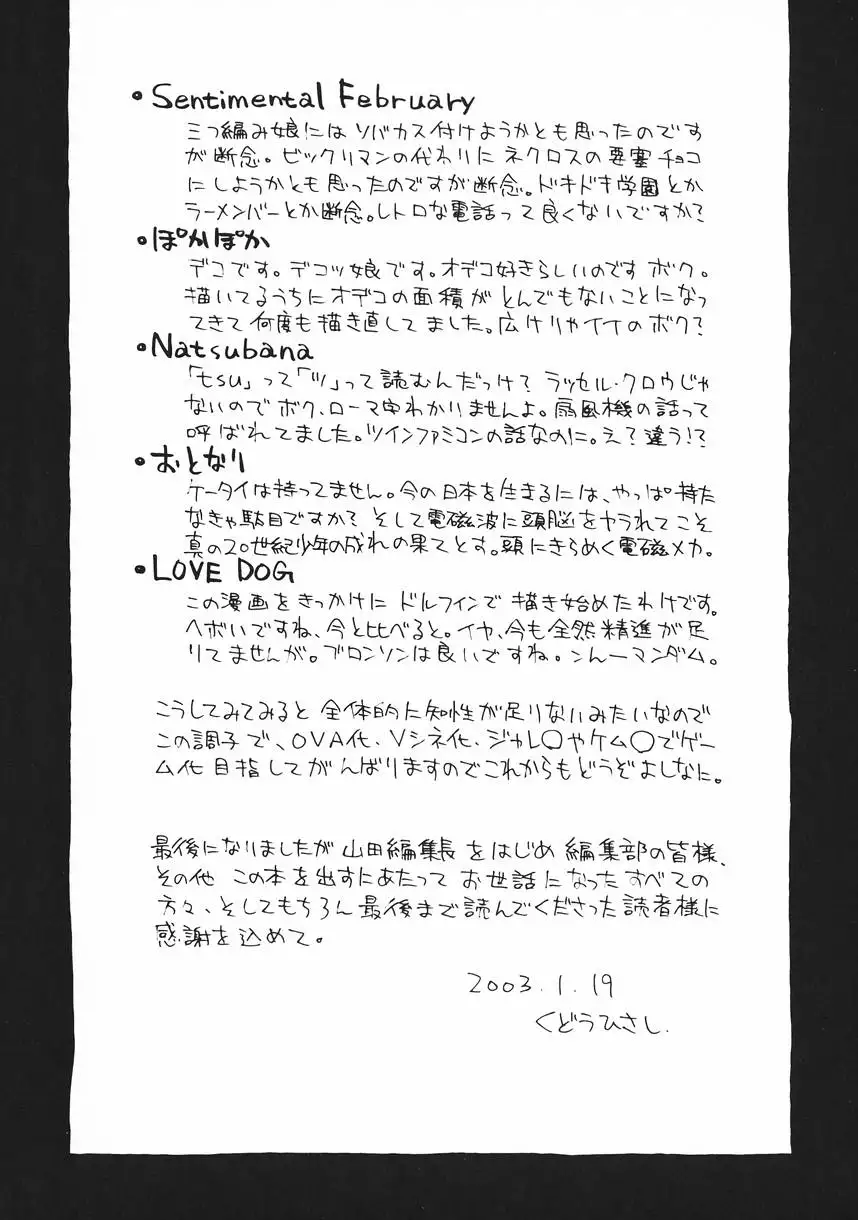 ・Sentimental February
三つ編み娘にはソバカス付けようかとも思ったのです
が断念。ビックリマンの代わりにネクロスの要塞チョコ
にしようかとも思ったのですが断念。ドキドキ学園とか
ラーメンバーとか断念。レトロな電話って良くないですか?
・ぽかぽか
デコです。デコッ娘です。オデコ好きらしいのですボク。
描いてるうちにオデコの面積がとんでもないことになっ
てきて何度も描き直してました。広けりゃイイのボク?
・Natsubana
「tsu」って「ツ」って読むんだっけ?ラッセル・クロウじゃ
ないのでボク、ローマ字わかりませんよ。扇風機の話って
呼ばれてました。ツインファミコンの話なのに。え?違う!?
・おとなり
ケータイは持ってません。今の日本を生きるには、やっぱ持た
なきゃ駄目ですか?そして電磁波に頭脳をヤラれてこそ
真の20世紀少年の成れの果てとす。頭にきらめく電磁メカ。
・LOVE DOG
この漫画をきっかけにドルフィンで描き始めたわけです。
ヘボいですね、今と比べると。イヤ、今も全然精進が足
りてませんが。ブロンソンは良いですね。うんーマンダム。
こうしてみてみると全体的に知性が足りないみたいなので
この調子で、OVA化、Vシネ化、ジャレ〇やケム〇でゲー
ム化目指してがんばりますのでこれからもどうぞよしなに。
最後になりましたが山田編集長をはじめ編集部の皆様、
その他この本を出すにあたってお世話になったすべての
方々、そしてもちろん最後まで読んでくださった読者様に
感謝を込めて。
2003.1.19
くどうひさし.